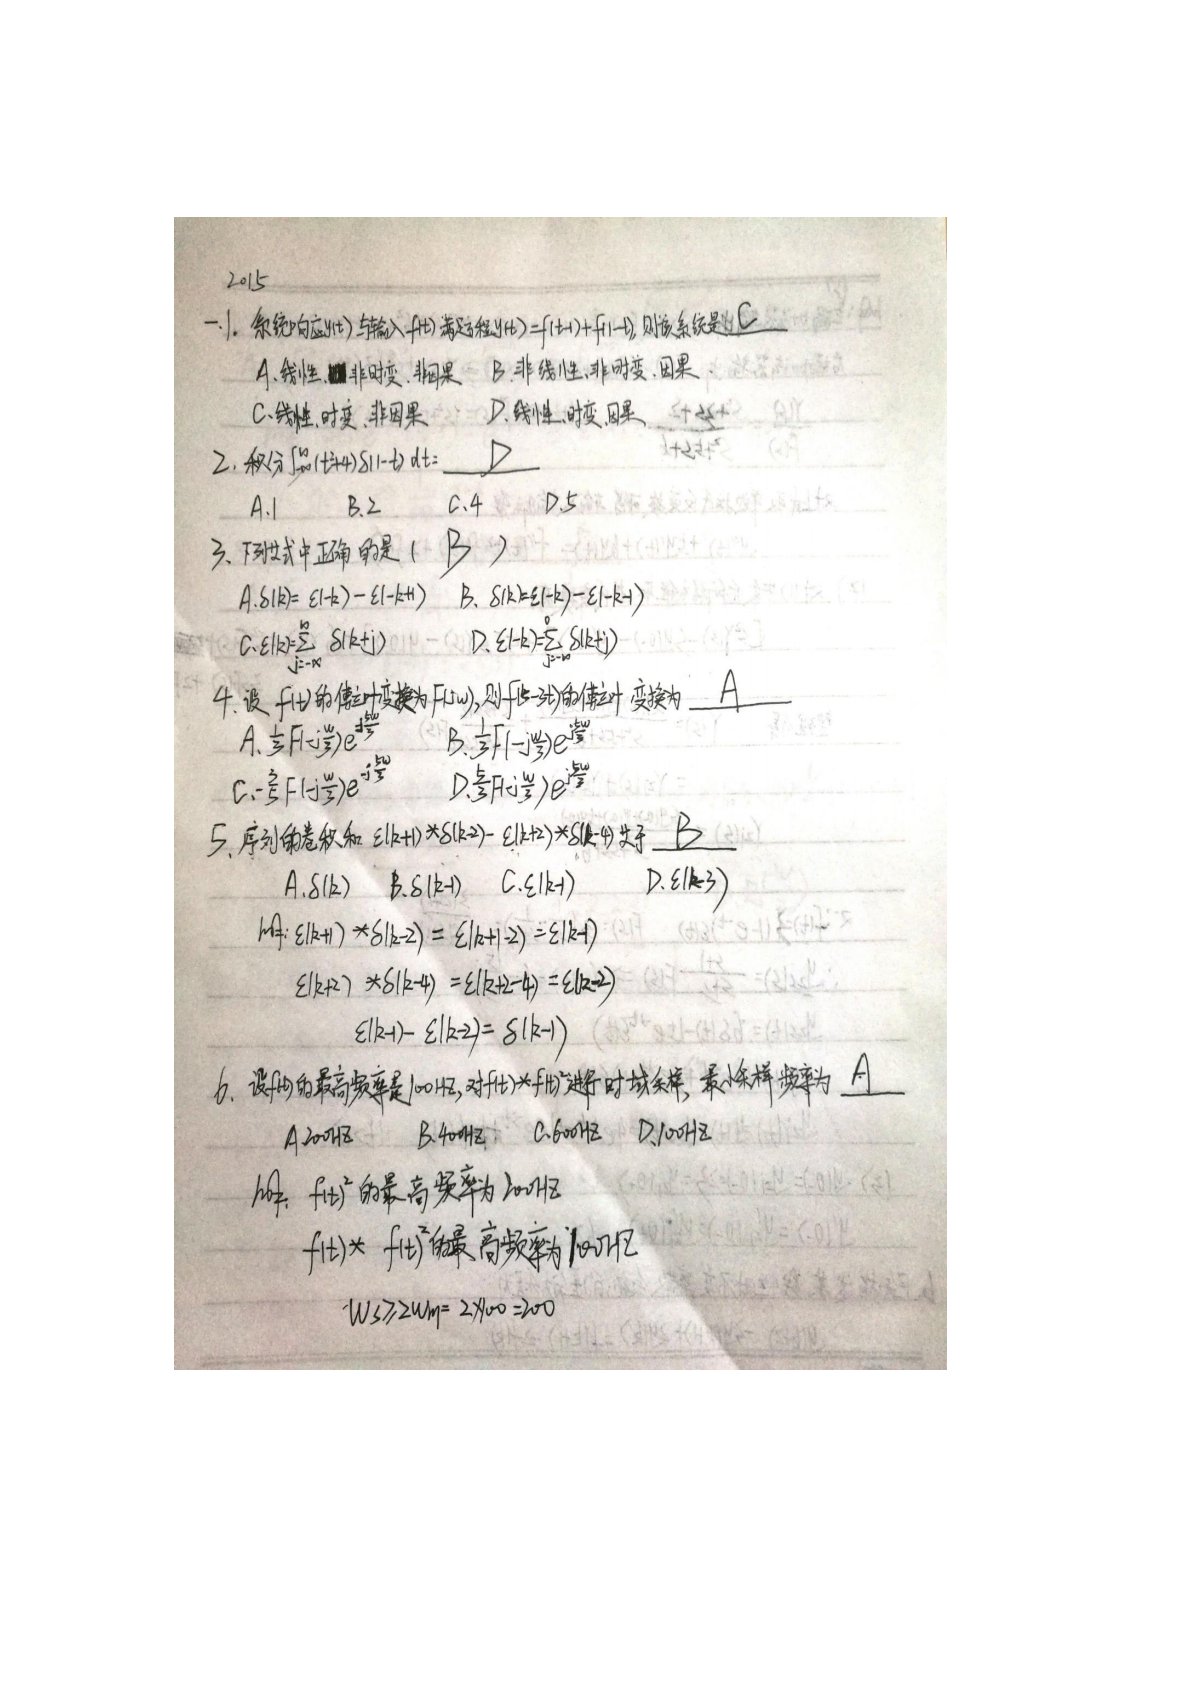 2015
一.1. 系统响应y(t)与输入f(t)满足方程y(t)=f(t-1)+f(1-t),则该系统是 C
A.线性、非时变、非因果 B.非线性、非时变、因果
C.线性、时变、非因果 D.线性、时变、因果
2. 积分∫(t²+4)δ(1-t)dt= D
A.1 B.2 C.4 D.5
3、下列式中正确的是( B )
A.δ(k)=ε(-k)-ε(-k+1) B. δ(k)=ε(-k)-ε(-k-1)
C.ε(k)=∑_{j=-∞}^{∞} δ(k+j) D.ε(-k)=∑_{j=-∞}^{0} δ(k+j)
4.设f(t)的傅立叶变换为F(jw),则f(5-3t)的傅立叶变换为 A
A.⅓F(-jw/3)e^{-j5w/3} B.⅓F(-jw/3)e^{j5w/3}
D.F(-jw/3)e^{j5w/3}
5、序列的卷积和 ε(k+1)*δ(k-2)-ε(k+2)*δ(k-4)等于 B
A.δ(k) B.δ(k-1) C.ε(k-1) D.ε(k-3)
解:ε(k+1)*δ(k-2)=ε(k+1-2)=ε(k-1)
ε(k+2)*δ(k-4)=ε(k+2-4)=ε(k-2)
ε(k-1)-ε(k-2)=δ(k-1)
6、设f(t)的最高频率是100HZ,对f(t)*f(t)²进行时域采样,最小采样频率为 A
A.200HZ B.400HZ C.600HZ D.100HZ
解: f(t)²的最高频率为200HZ
f(t)* f(t)²的最高频率为100HZ
Ws≥2Wm=2×100=200